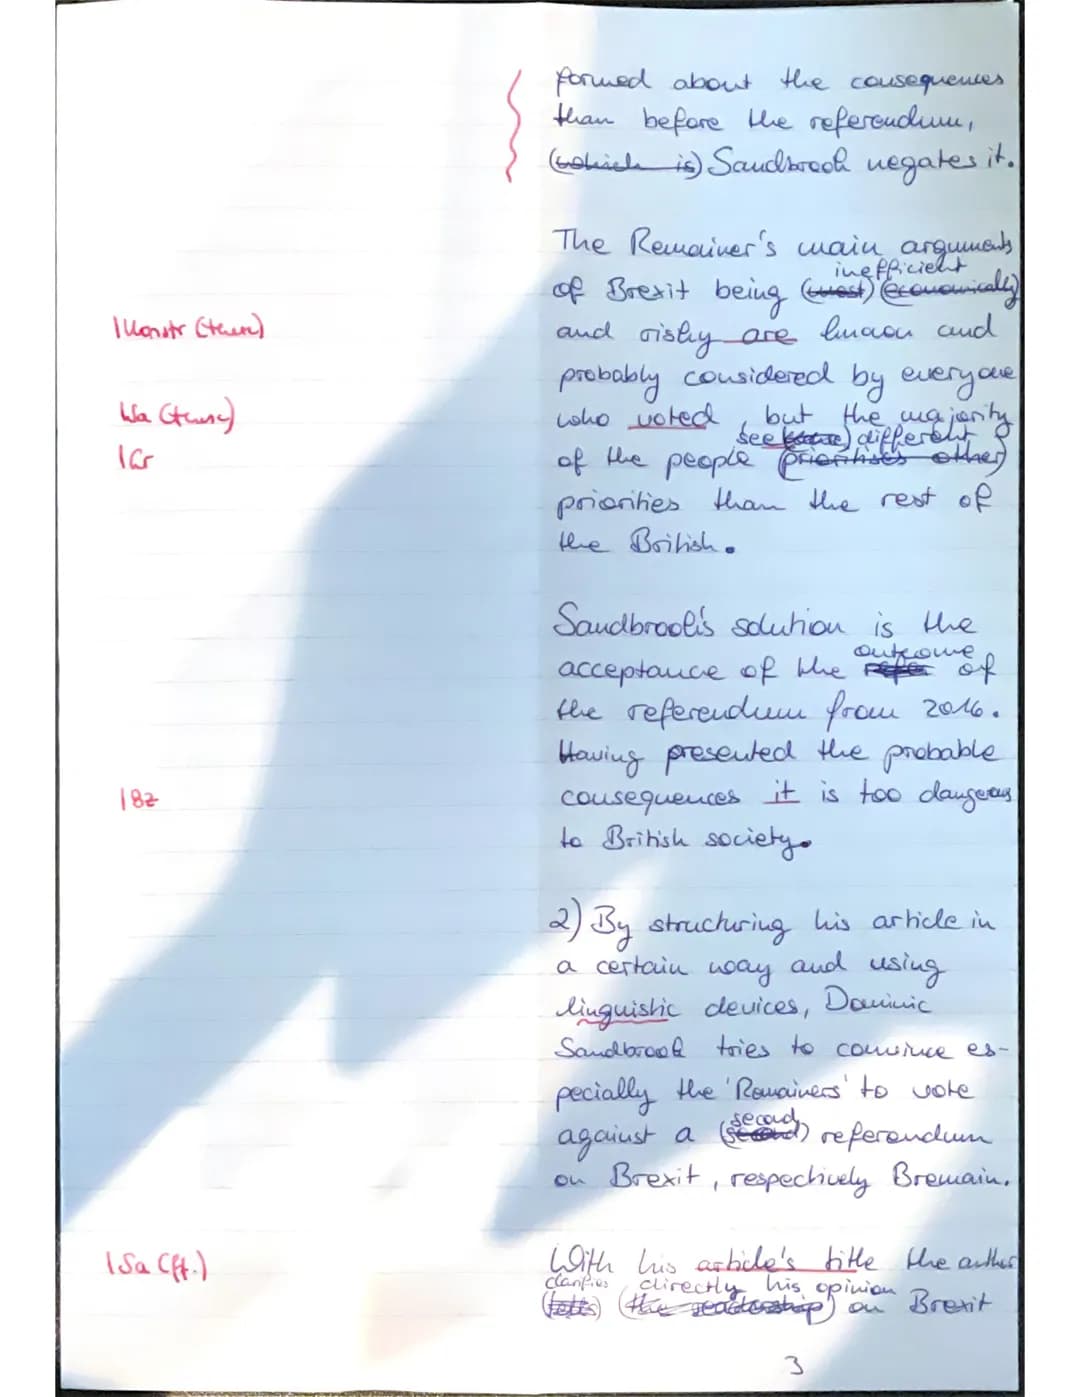 formed about the consequences
than before the referendum,
(which is) Sandbrook negates it.
The Remainer's main arguments
inefficient
of Brexit being (most) (economically)
1 Konstr (then)
and risky are known and
probably considered by everyone
Wa (tense)
who voted, but the majority
see different
1 Gr
of the people (prioritises other)
priorities than the rest of
the British.
Sandbrook's solution is the
outcome
acceptance of the refe of
the referendum from 2016.
Having presented the probable
1 Bz
consequences it is too dangerous
to British society.
2) By structuring his article in
a certain way and using
linguistic devices, Dominic
Sandbrook tries to convince es-
pecially the 'Remainers' to vote
second
against a (second) referendum
on Brexit, respectively Bremain.
1 Sa (ft.)
With his article's title the author
clarifies directly his opinion
(the readership) on Brexit
3